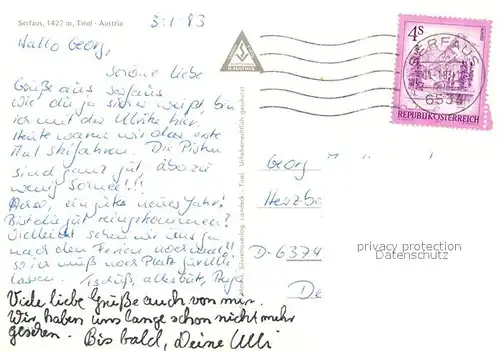 Serfaus, 1427 m, Tirol - Austria
3.1.83
Hallo Georg,
schöne liebe
Grüße aus Serfaus
wie du ja sicher weißt, bin
ich mit der Ulrike hier.
Heute waren wir das erste
Mal skifahren. Die Pisten
sind ganz gut, aber zu
wenig Schnee!!!
Also, ein gutes neues Jahr!
Bist du gut reingekommen?
Vielleicht sehen wir uns ja
nach den Ferien nochmal!!
so ich muß noch Platz für Ulli
lassen. Tschüß, alles Gute,
Viele liebe Grüße auch von mir.
Wir haben uns lange schon nicht mehr
gesehen. Bis bald, Deine Ulli
Urheberrechtlich geschützt
Landeck - Tirol
4S
REPUBLIK ÖSTERREICH
SERFAUS
6534
Georg
Herzbe
D-6374
privacy protection
Datenschutz